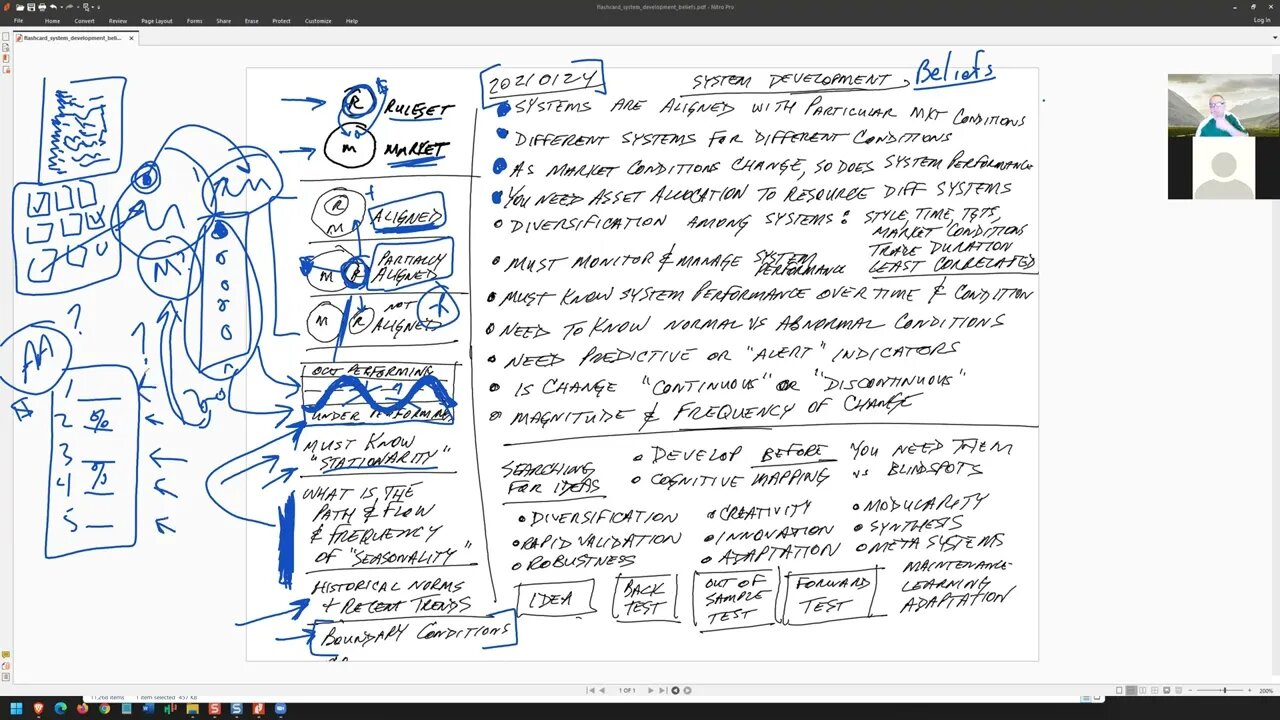 flashcard_system_development_beliefs.pdf - Nitro Pro
File Home Convert Review Page Layout Forms Share Erase Protect Customize Help
Log In
flashcard_system_development_beli...
20210124
SYSTEM DEVELOPMENT Beliefs
R RULESET
M MARKET
R
M
ALIGNED
M R PARTIALLY
ALIGNED
M R NOT
ALIGNED
OUT PERFORMING
UNDER PERFORMING
MUST KNOW
"STATIONARITY"
WHAT IS THE
PATH & FLOW
& FREQUENCY
OF "SEASONALITY"
HISTORICAL NORMS
+ RECENT TRENDS
BOUNDARY CONDITIONS
• SYSTEMS ARE ALIGNED WITH PARTICULAR MKT CONDITIONS
• DIFFERENT SYSTEMS FOR DIFFERENT CONDITIONS
• AS MARKET CONDITIONS CHANGE, SO DOES SYSTEM PERFORMANCE
• YOU NEED ASSET ALLOCATION TO RESOURCE DIFF SYSTEMS
• DIVERSIFICATION AMONG SYSTEMS: STYLE, TIME, TGTS,
MARKET CONDITIONS
TRADE DURATION
LEAST CORRELATED
• MUST MONITOR & MANAGE SYSTEM
PERFORMANCE
• MUST KNOW SYSTEM PERFORMANCE OVER TIME & CONDITION
• NEED TO KNOW NORMAL VS ABNORMAL CONDITIONS
• NEED PREDICTIVE OR "ALERT" INDICATORS
• IS CHANGE "CONTINUOUS" OR "DISCONTINUOUS"
• MAGNITUDE & FREQUENCY OF CHANGE
SEARCHING
FOR IDEAS
• DEVELOP BEFORE YOU NEED THEM
• COGNITIVE MAPPING VS BLINDSPOTS
• DIVERSIFICATION • CREATIVITY • MODULARITY
• RAPID VALIDATION • INNOVATION • SYNTHESIS
• ROBUSTNESS • ADAPTATION • META SYSTEMS
IDEA
BACK
TEST
OUT OF
SAMPLE
TEST
FORWARD
TEST
MAINTENANCE
LEARNING
ADAPTATION
M?
AA ?
?
1
2 %
3
4 %
5
1 OF 1
200%
11,268 items 1 item selected 457 KB